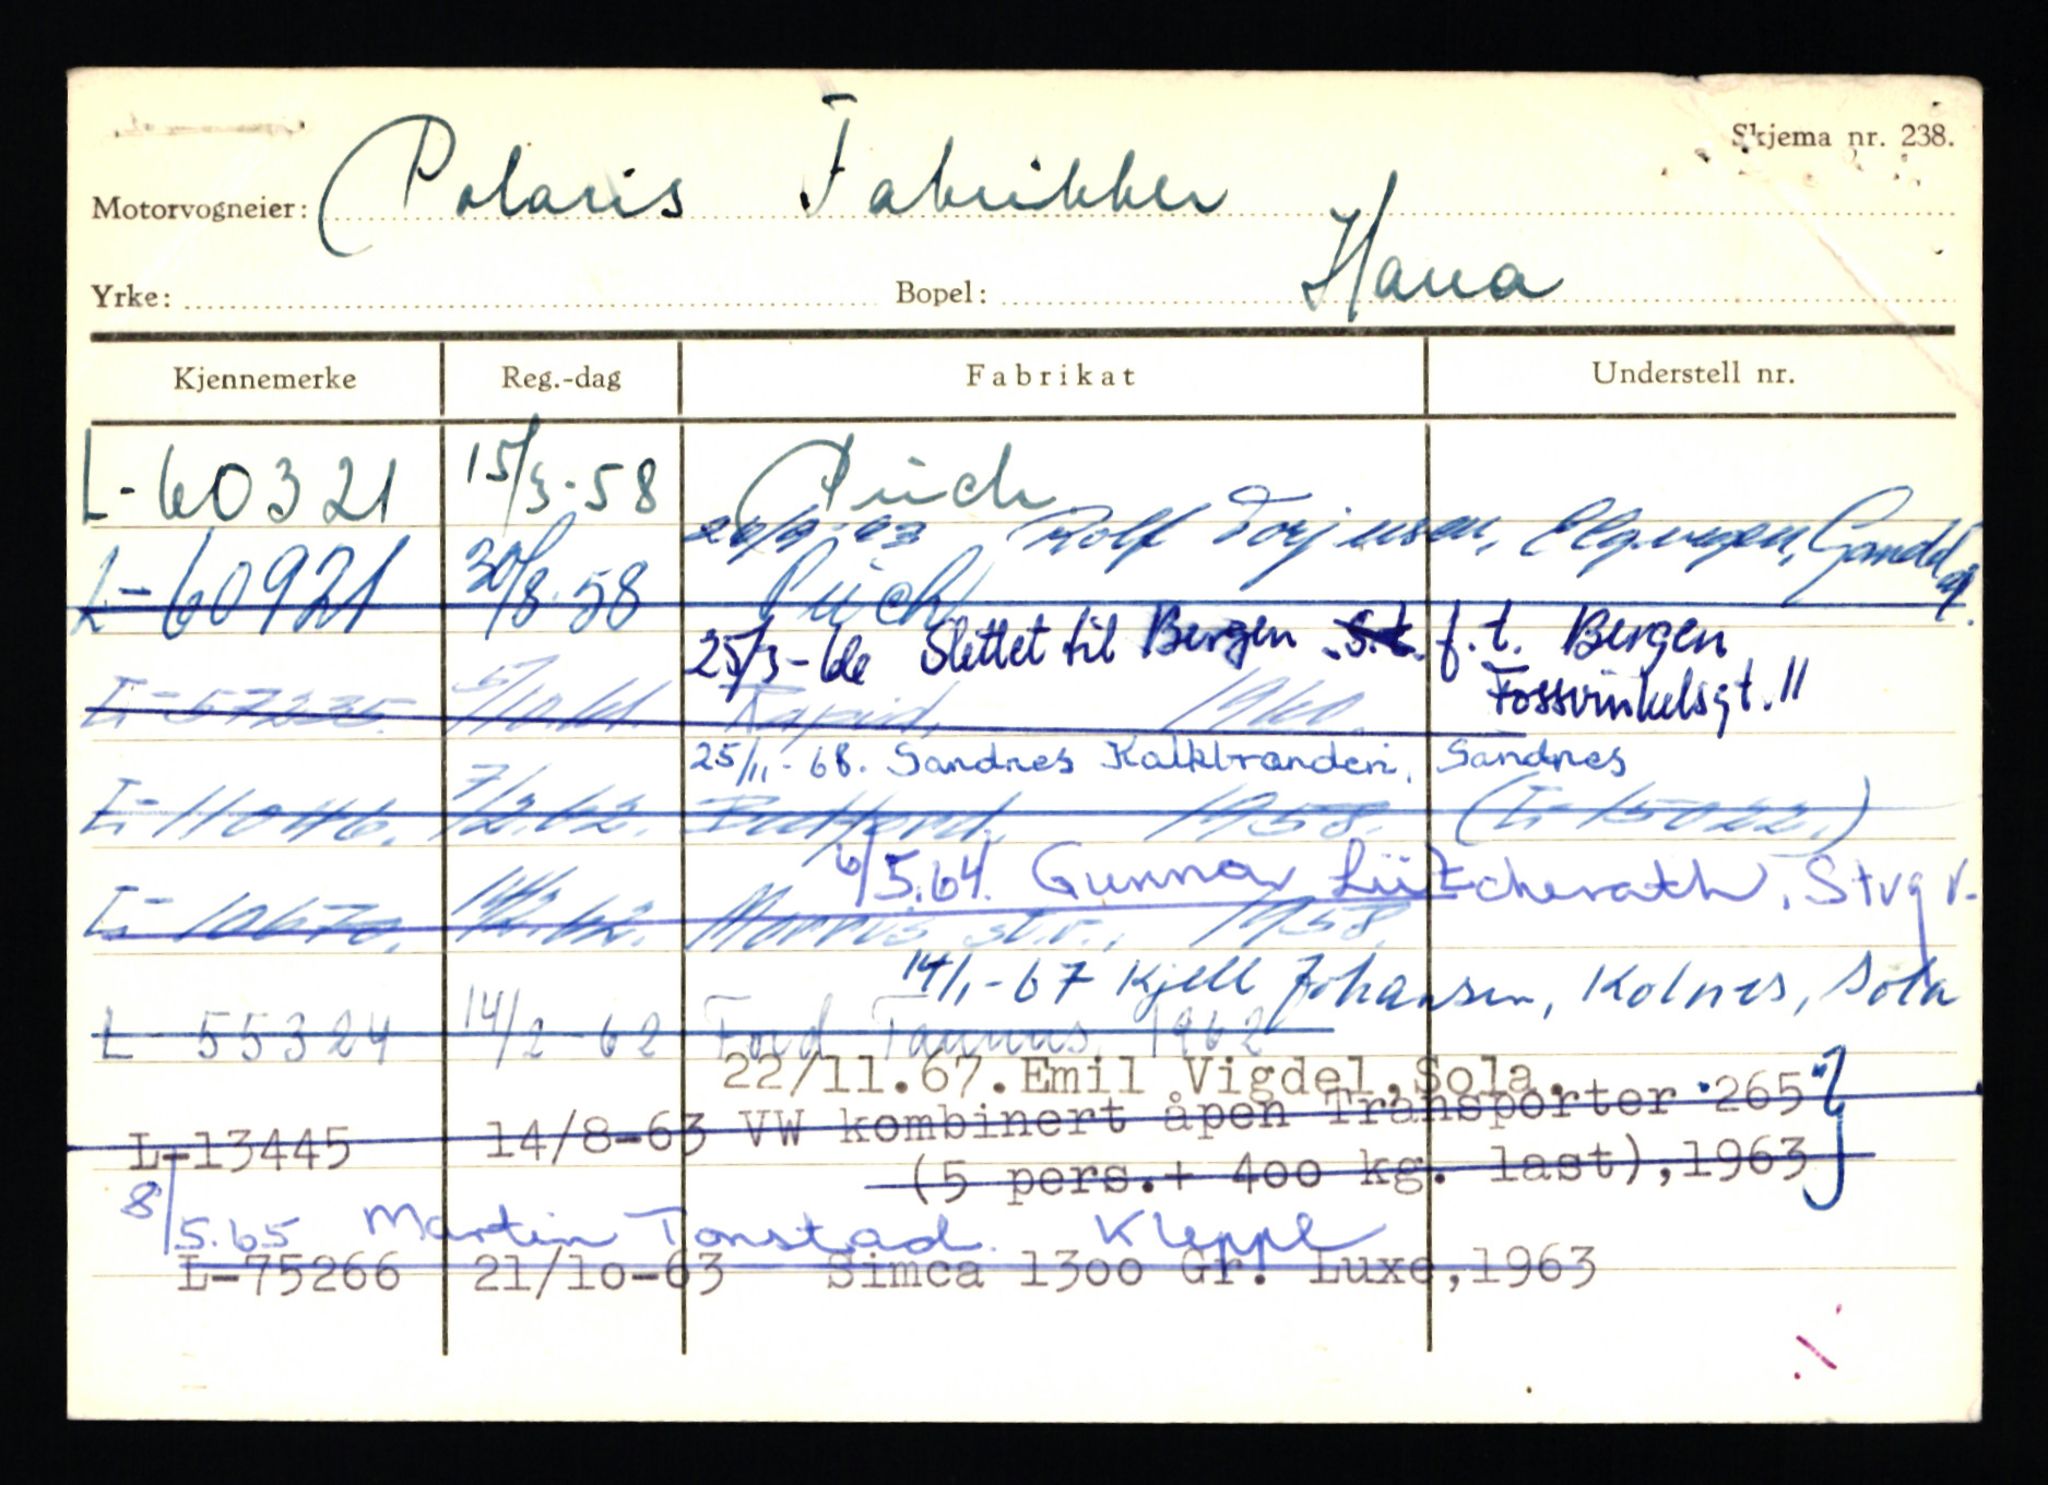 Skjema nr. 238.
Motorvogneier: Polaris Fabrikker
Yrke: Bopel: Hana
Kjennemerke Reg.-dag Fabrikat Understell nr.
L-60321 15/3-58 Puch
Rolf Torjusen, Elgvegen, Gandal
L-60921 30/8-58 Puch
25/3-66 Slettet til Bergen f.t. Bergen
Fossvinkelsgt. 11
L-57235. 5/10.61. Rapid, 1960.
25/11-68. Sandnes Kalkbrænderi, Sandnes
L-11046. 7/2.62. Bedford. 1958. (L-15022.)
6/5.64. Gunnar Lützcherath, Stvgr.
L-10670. 14/2.62. Morris st.v., 1958.
14/1-67 Kjell Johansen, Kolnes, Sola
L-55324 14/2-62 Ford Taunus 1962
22/11.67. Emil Vigdel, Sola.
L-13445 14/8-63 VW kombinert åpen Transporter 265
(5 pers.+ 400 kg. last),1963
8/5.65 Martin Tonstad Kleppe
L-75266 21/10-63 Simca 1300 Gr. Luxe,1963